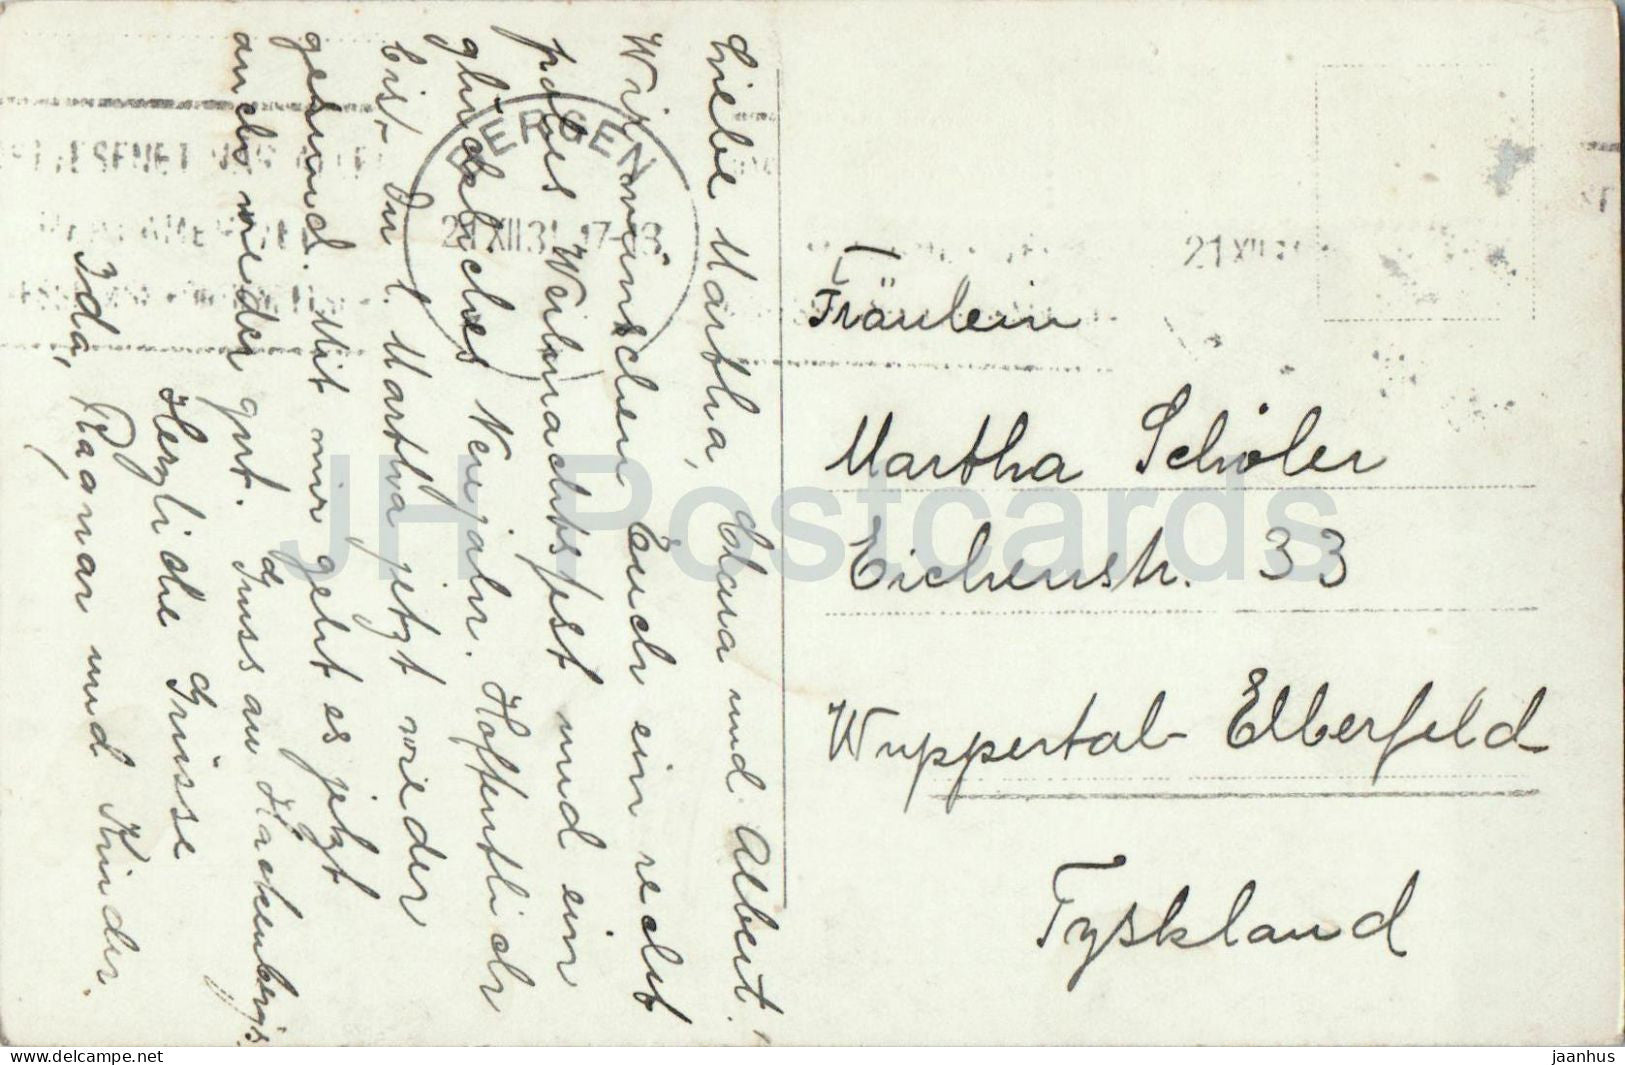 Liebe Martha, Clara und Albert!
Wir wünschen Euch ein recht
frohes Weihnachtsfest und ein
glückliches Neujahr. Hoffentlich
bist Du l. Martha jetzt wieder
gesund. Mit mir geht es jetzt
auch wieder gut. Gruss an Hackenbergs
Herzliche Grüsse
Ida, Ragnar und Kinder.
BERGEN
XII 31 17-18
21 XII
Fräulein
Martha Schöler
Eichenstr. 33
Wuppertal-Elberfeld
Tyskland
JH Postcards
PICTURES.DELCAMPE.NET
jaanhus